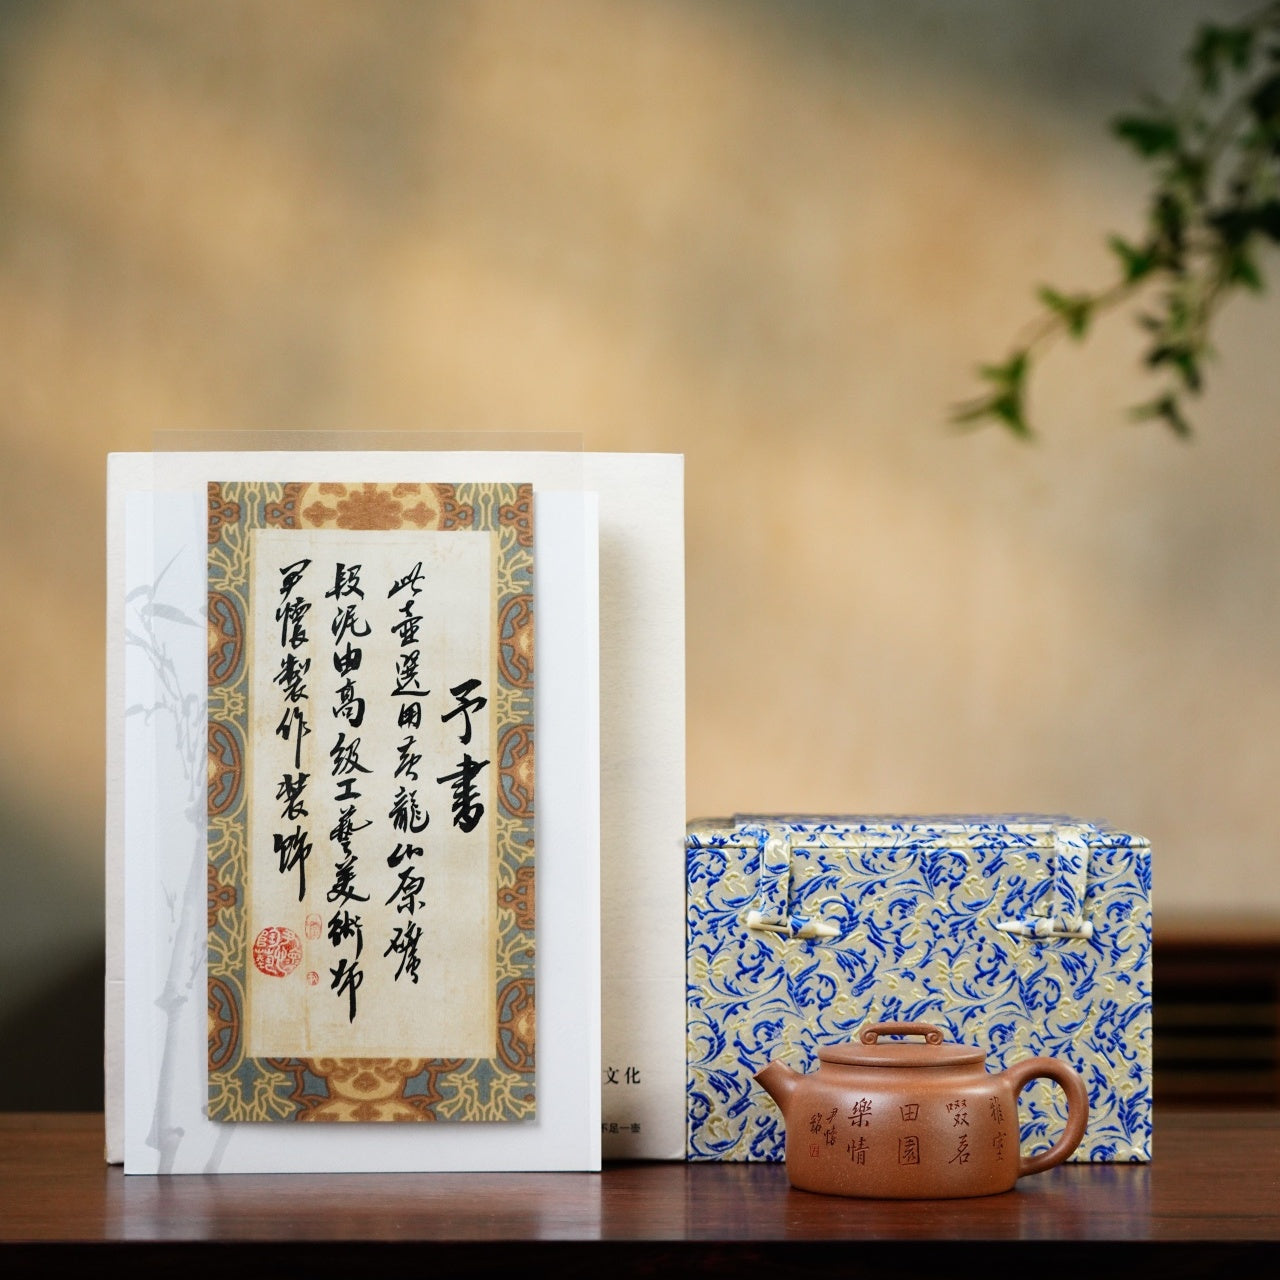 予書
此壺選用黃龍山原礦
段泥由高級工藝美術師
尹懷製作裝飾
文化
不足一壺
雅室
啜茗
田園
樂情
尹懷
銘